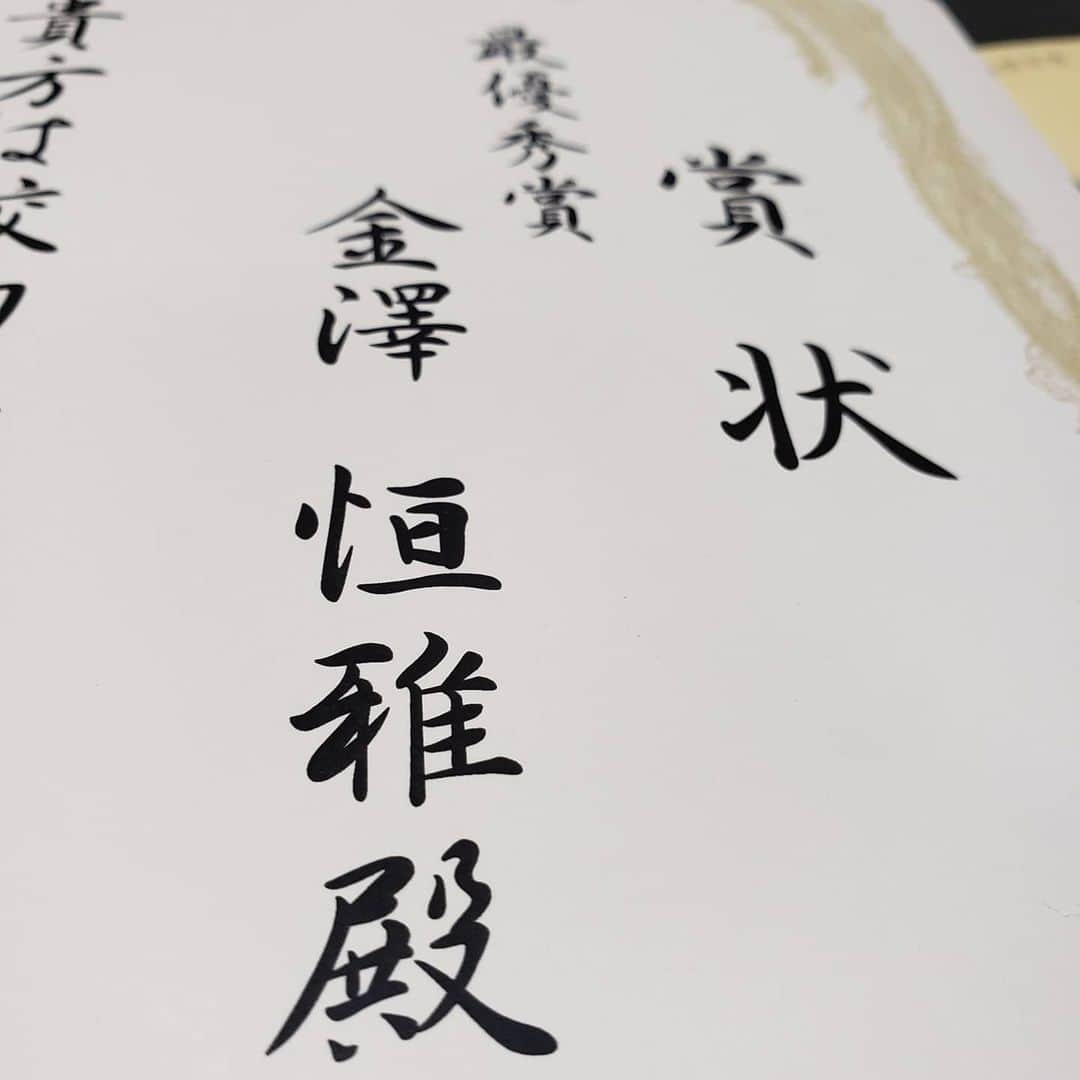 賞状
最優秀賞
金澤 恒雅殿
貴方は校